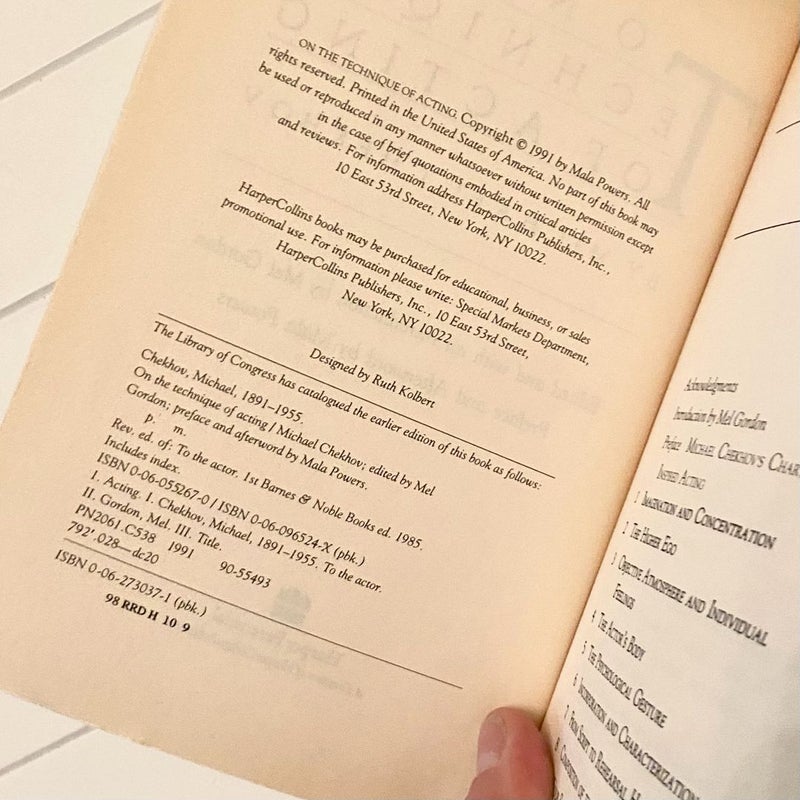 ON THE TECHNIQUE OF ACTING. Copyright © 1991 by Mala Powers. All
rights reserved. Printed in the United States of America. No part of this book may
be used or reproduced in any manner whatsoever without written permission except
in the case of brief quotations embodied in critical articles
and reviews. For information address HarperCollins Publishers, Inc.,
10 East 53rd Street, New York, NY 10022.
HarperCollins books may be purchased for educational, business, or sales
promotional use. For information please write: Special Markets Department,
HarperCollins Publishers, Inc., 10 East 53rd Street,
New York, NY 10022.
Designed by Ruth Kolbert
The Library of Congress has catalogued the earlier edition of this book as follows:
Chekhov, Michael, 1891–1955.
On the technique of acting / Michael Chekhov; edited by Mel
Gordon; preface and afterword by Mala Powers.
p. m.
Rev. ed. of: To the actor. 1st Barnes & Noble Books ed. 1985.
Includes index.
ISBN 0-06-055267-0 / ISBN 0-06-096524-X (pbk.)
I. Acting. I. Chekhov, Michael, 1891–1955. To the actor.
II. Gordon, Mel. III. Title.
PN2061.C538 1991
792'.028—dc20 90-55493
ISBN 0-06-273037-1 (pbk.)
98 RRD H 10 9
Acknowledgments
Introduction by Mel Gordon
Preface MICHAEL CHEKHOV'S
INSPIRED ACTING
1 IMAGINATION AND CONCENTRATION
2 THE HIGHER EGO
3 OBJECTIVE ATMOSPHERE AND INDIVIDUAL
FEELINGS
4 THE ACTOR'S BODY
5 THE PSYCHOLOGICAL GESTURE
6 INCORPORATION AND CHARACTERIZATION
7 FROM SCRIPT TO REHEARSAL
8 COMPOSITION OF